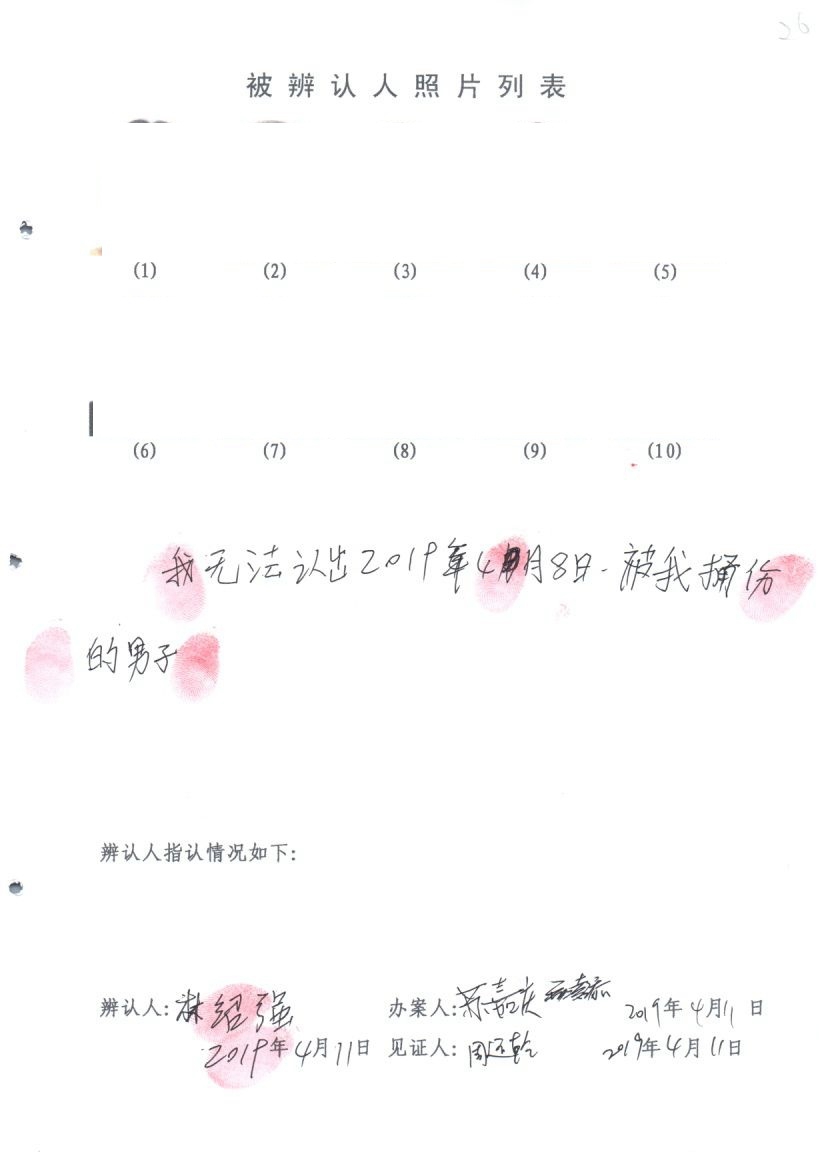 26
被辨认人照片列表
(1) (2) (3) (4) (5)
(6) (7) (8) (9) (10)
我无法认出2019年4月8日.被我捅份
的男子
辨认人指认情况如下:
辨认人:林绍强 办案人: 2019年4月11日
2019年4月11日 见证人: 2019年4月11日